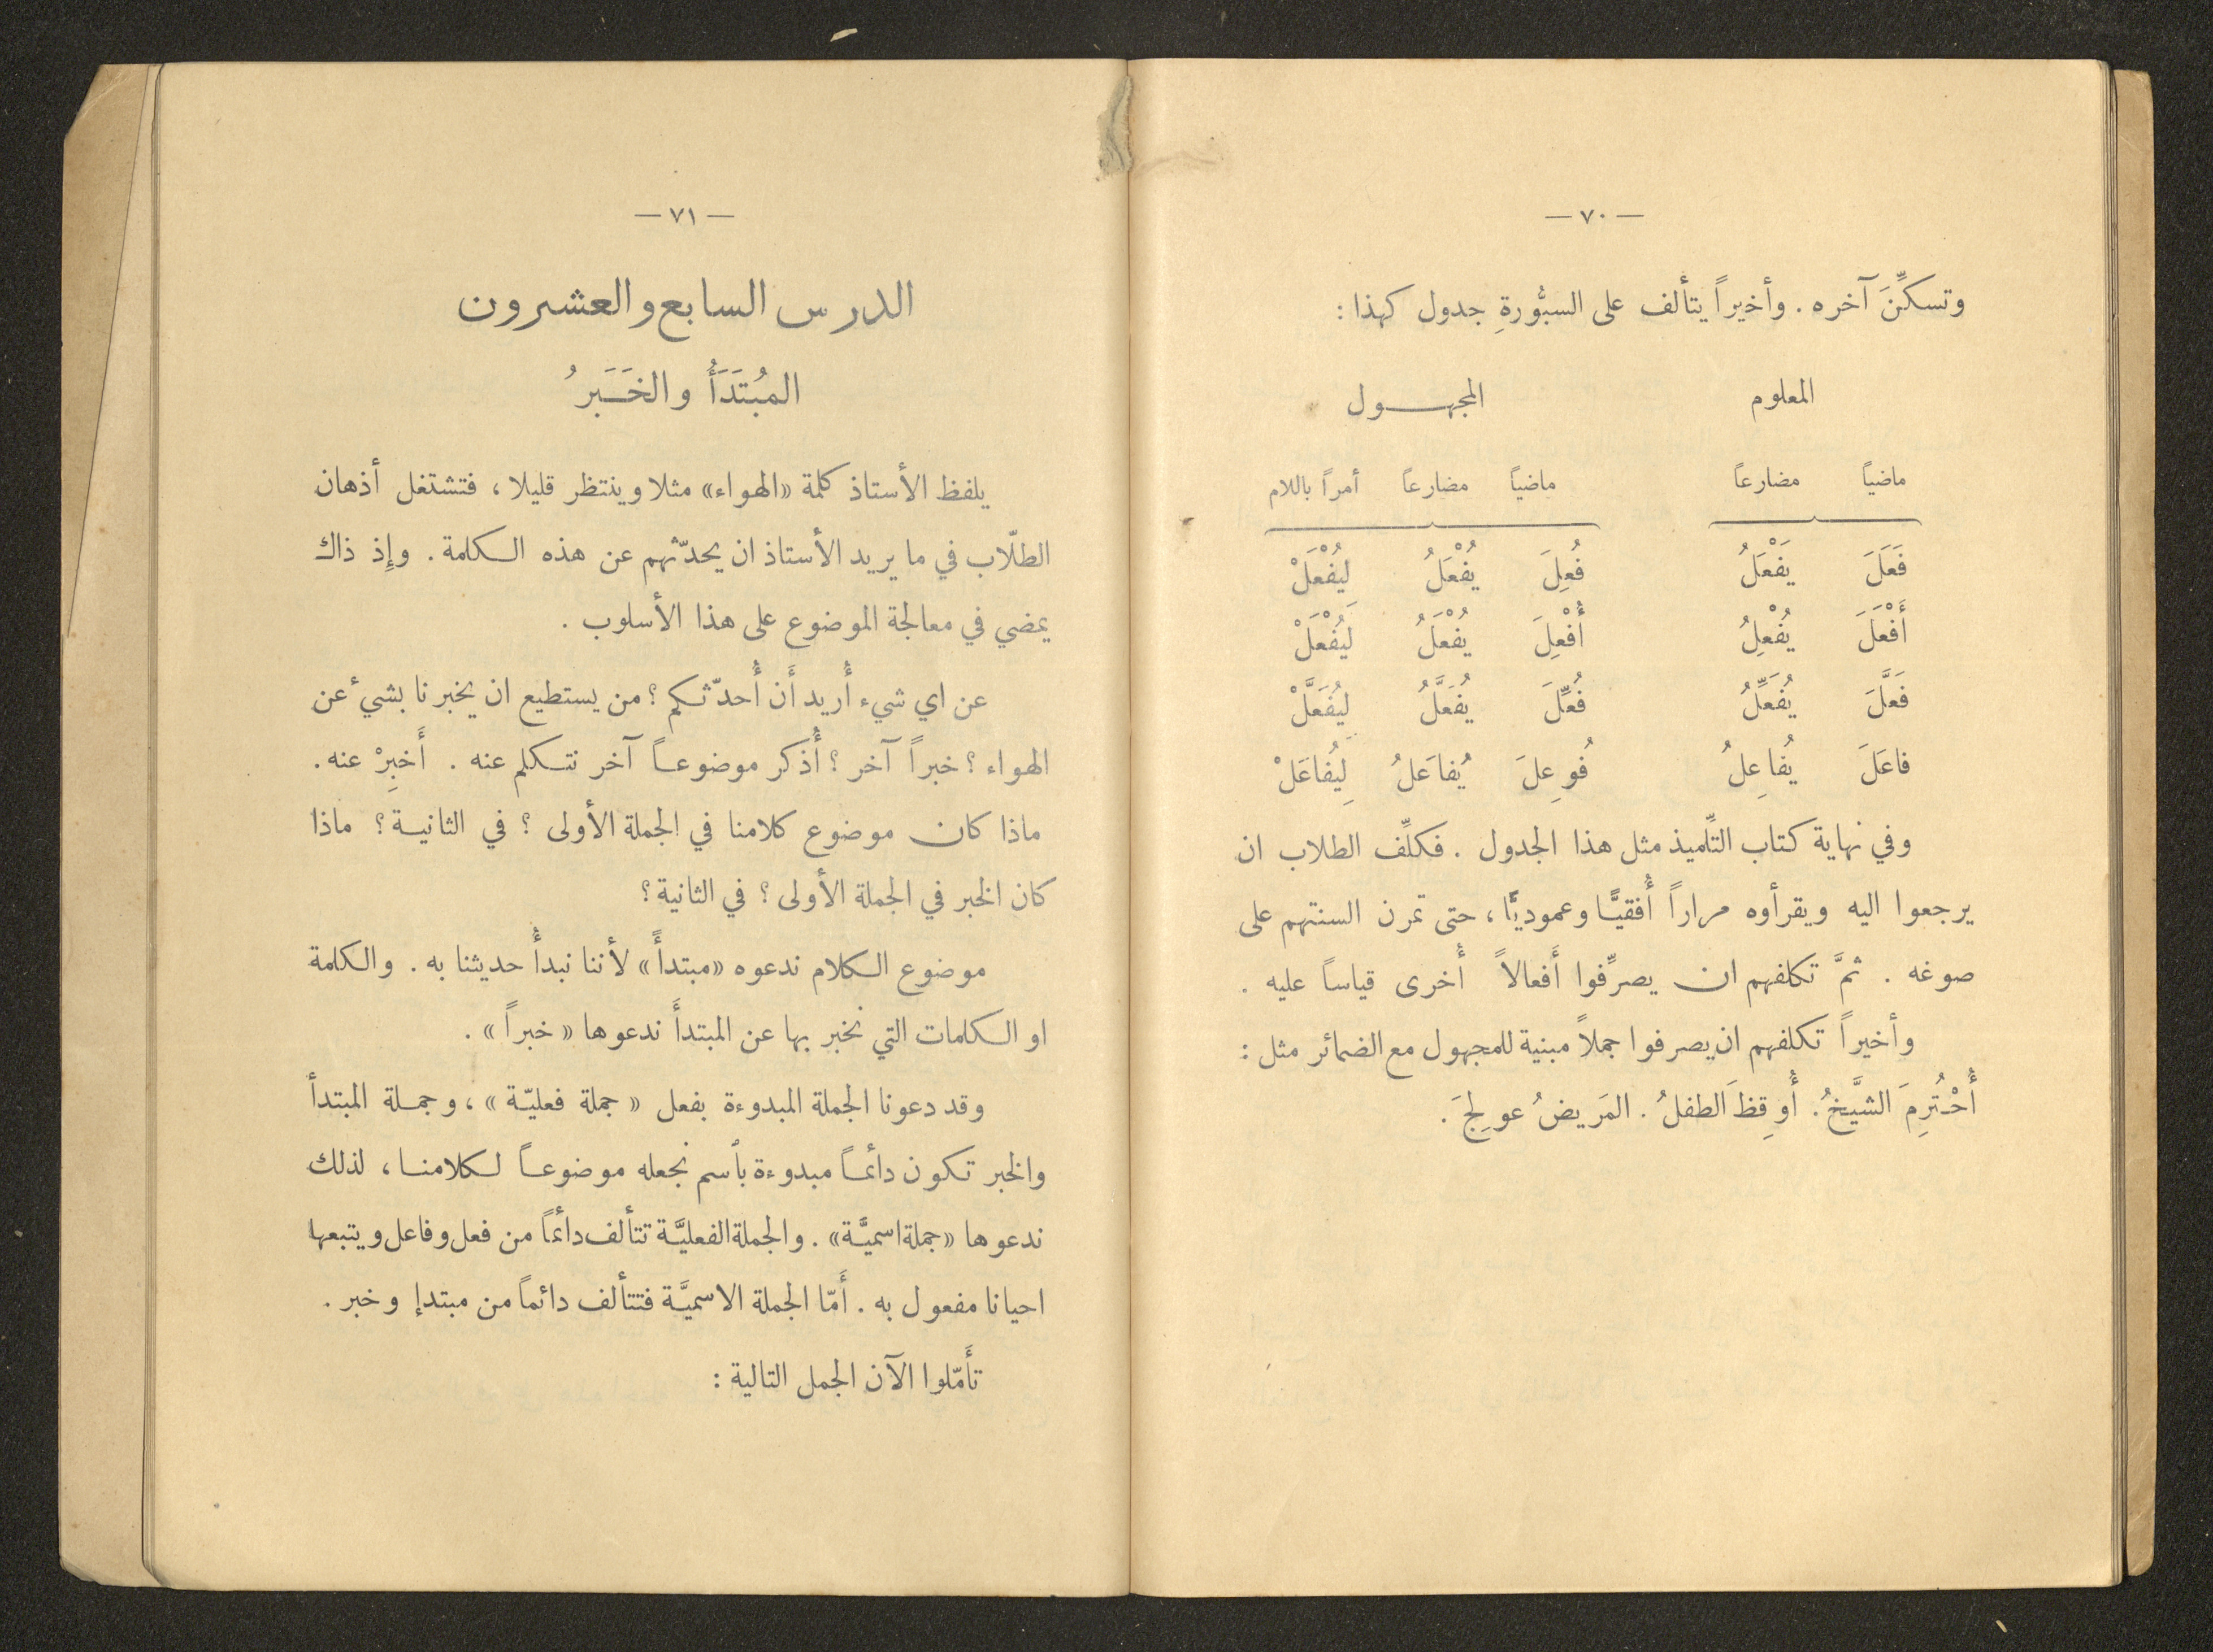 — ٧٠ —
وتسكِّنَ آخره . وأخيراً يتألف على السبُّورةِ جدول كهذا :
المعلوم المجهـــول
ماضياً مضارعاً ماضياً مضارعاً أمراً باللام
فَعَلَ يَفْعَلُ فُعِلَ يُفْعَلُ لِيُفْعَلْ
أَفْعَلَ يُفْعِلُ أُفْعِلَ يُفْعَلُ لِيُفْعَلْ
فَعَّلَ يُفَعِّلُ فُعِّلَ يُفَعَّلُ لِيُفَعَّلْ
فاعَلَ يُفاعِلُ فُوعِلَ يُفاعَلُ لِيُفاعَلْ
وفي نهاية كتاب التِّلميذ مثل هذا الجدول . فكلِّف الطلاب ان
يرجعوا اليه ويقرأوه مراراً أُفقيًّا وعموديًّا ، حتى تمرن السنتهم على
صوغه . ثمَّ تكلفهم ان يصرِّفوا أَفعالاً أُخرى قياساً عليه .
وأخيراً تكلفهم ان يصرفوا جملاً مبنية للمجهول مع الضمائر مثل :
أُحْتُرِمَ الشَّيْخُ . أُوقِظَ الطفلُ . المَريضُ عولِجَ .
— ٧١ —
الدرس السابع والعشرون
المُبْتَدَأُ والخَـبَرُ
يلفظ الأستاذ كلمة «الهواء» مثلا وينتظر قليلا ، فتشتغل أذهان
الطلّاب في ما يريد الأستاذ ان يحدّثهم عن هذه الكلمة . وإِذ ذاك
يمضي في معالجة الموضوع على هذا الأسلوب .
عن اي شيء أُريد أَن أُحدّثكم ؟ من يستطيع ان يخبرنا بشئ عن
الهواء ؟ خبراً آخر ؟ أُذكر موضوعـاً آخر نتكلم عنه . أَخبِرْ عنه .
ماذا كان موضوع كلامنا في الجملة الأولى ؟ في الثانيـة ؟ ماذا
كان الخبر في الجملة الأولى ؟ في الثانية ؟
موضوع الكلام ندعوه «مبتدأً» لأننا نبدأُ حديثنا به . والكلمة
او الكلمات التي نخبر بها عن المبتدأَ ندعوها «خبراً» .
وقد دعونا الجملة المبدوءة بفعل «جملة فعليّة» ، وجمـلة المبتدأ
والخبر تكون دائمـاً مبدوءة بأسم نجعله موضوعـاً لـكلامنـا ، لذلك
ندعوها «جملة اسميَّة» . والجملة الفعليَّة تتألف دائماً من فعل وفاعل ويتبعها
احيانا مفعول به . أَمّا الجملة الاسميَّة فتتألف دائماً من مبتدإ وخبر .
تأَمّلوا الآن الجمل التالية :